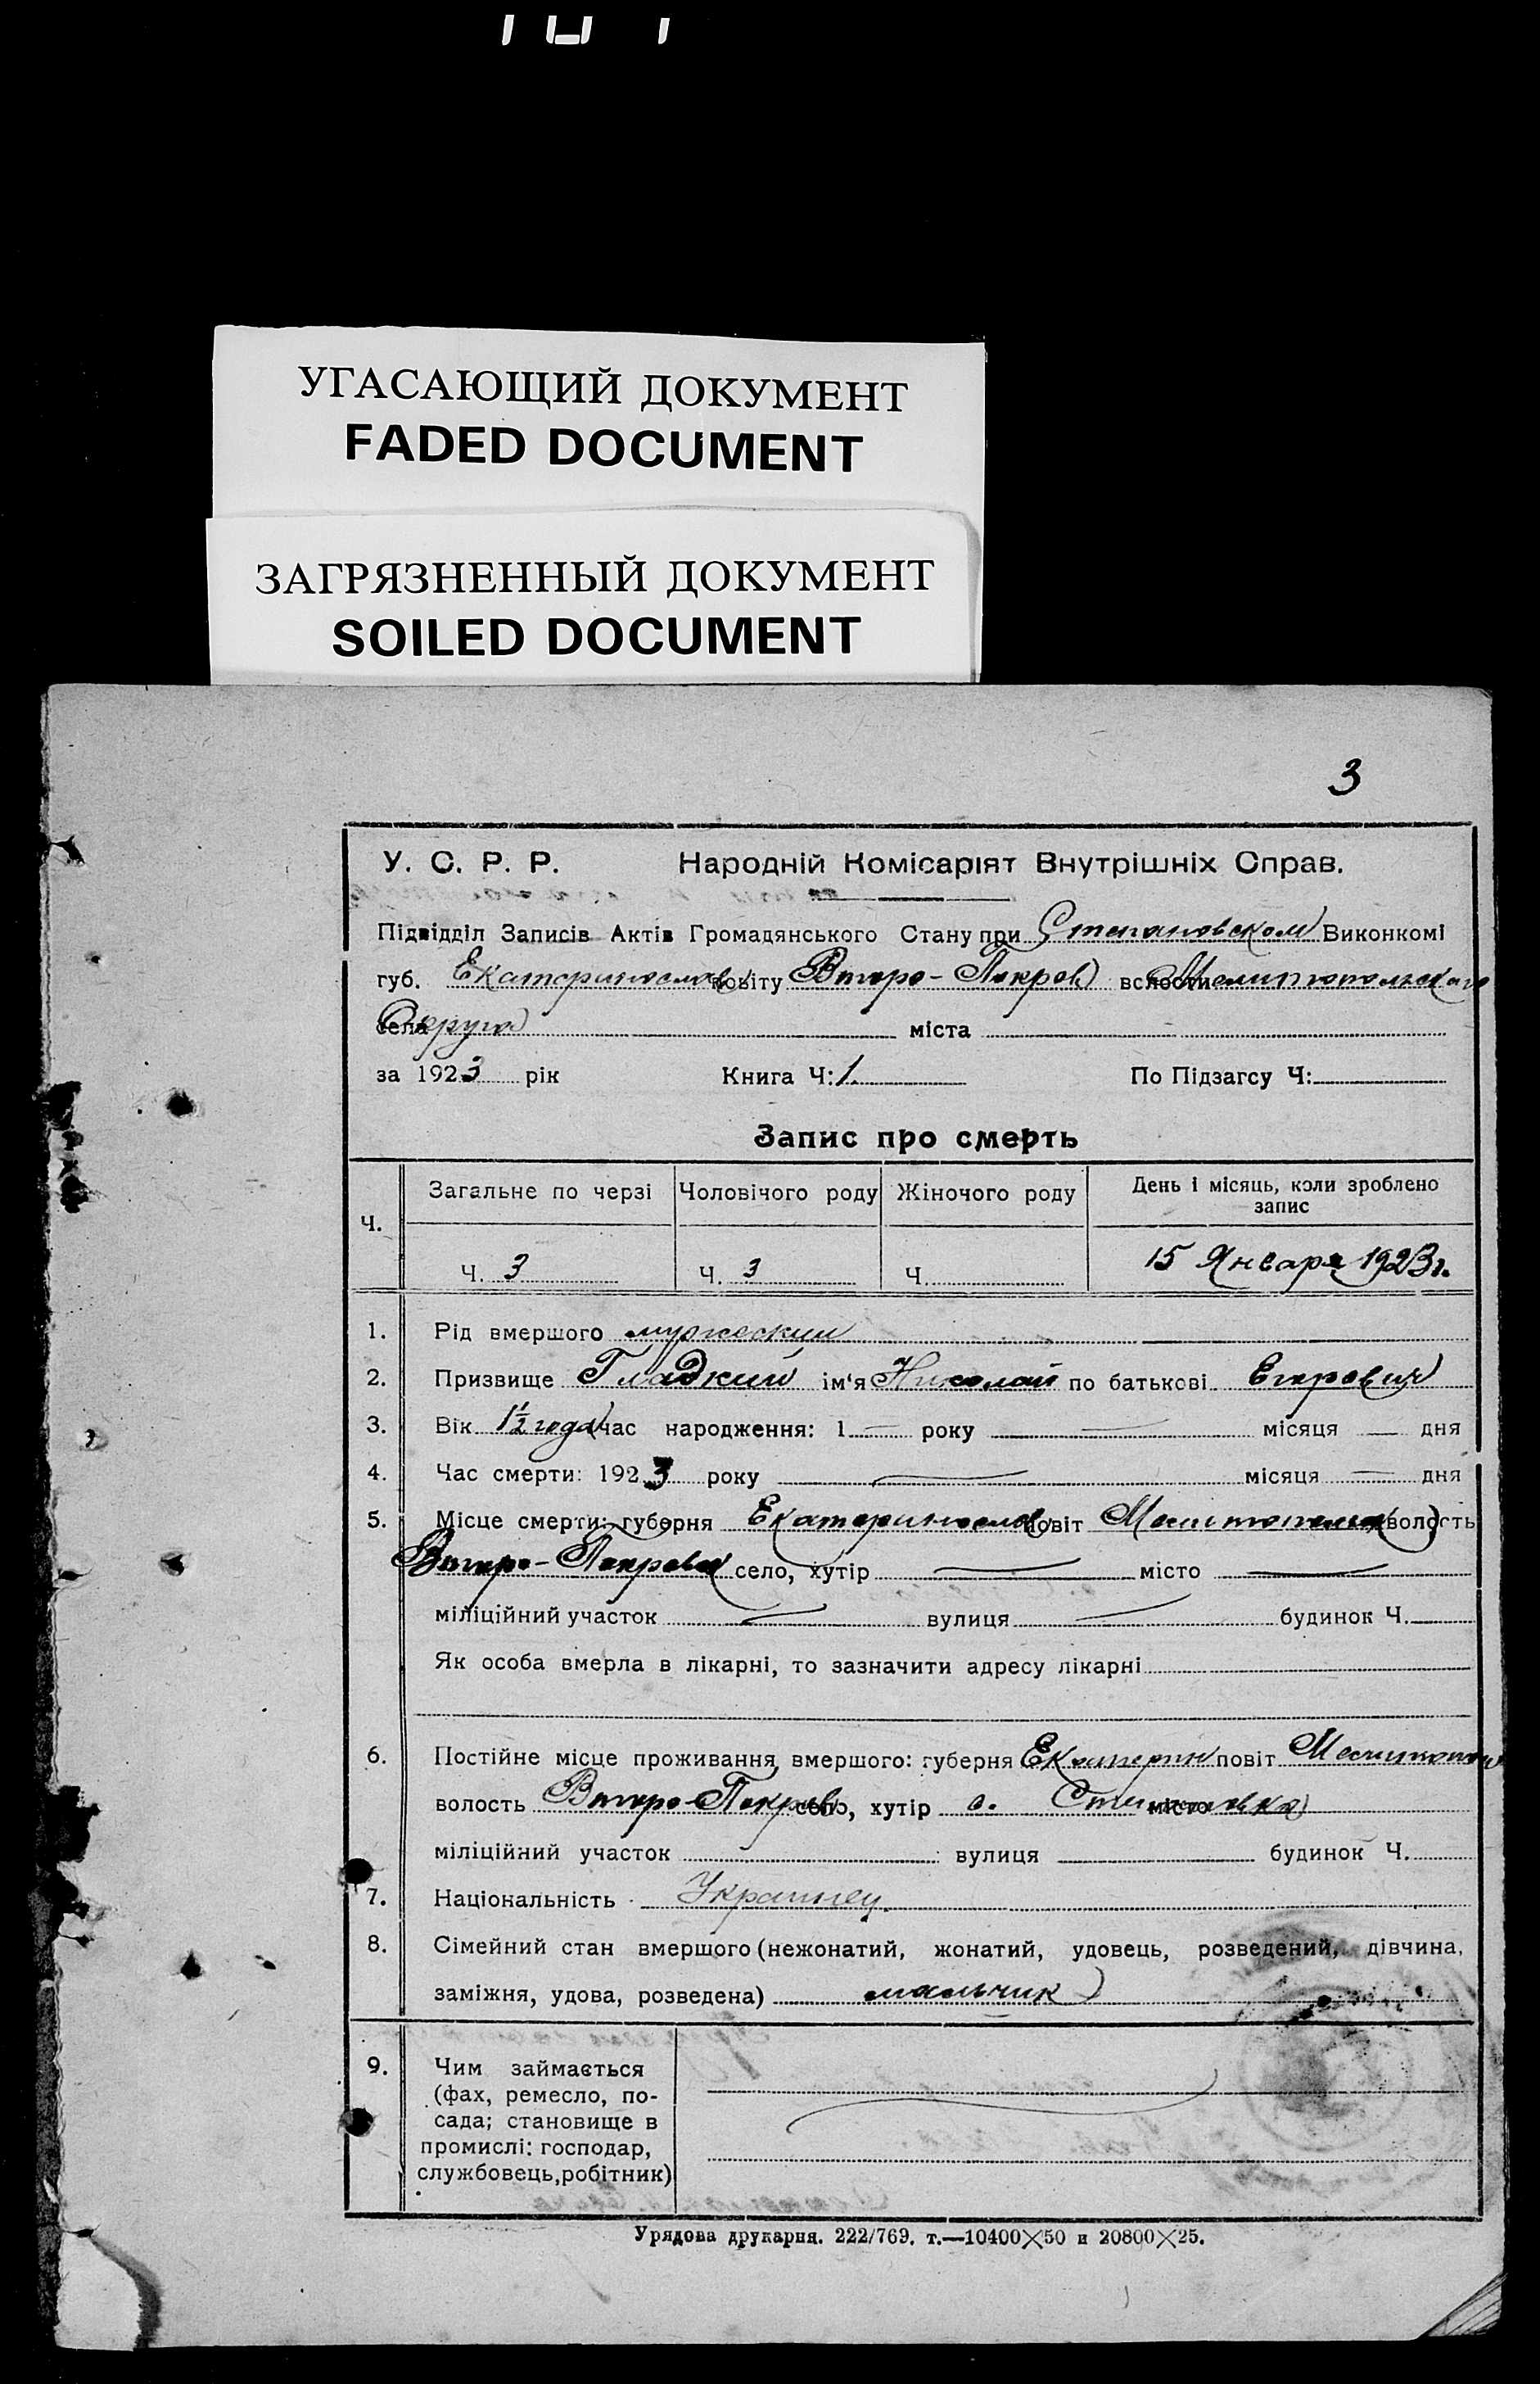 УГАСАЮЩИЙ ДОКУМЕНТ
FADED DOCUMENT
ЗАГРЯЗНЕННЫЙ ДОКУМЕНТ
SOILED DOCUMENT
3
У. С. Р. Р. Народній Комісаріят Внутрішніх Справ.
Підвідділ Записів Актів Громадянського Стану при Степановском Виконкомі
губ. Екатеринослав повіту Второ-Покров волости Мелитопольскаго
села Округа міста
за 1923 рік Книга Ч: 1. По Підзагсу Ч:
Запис про смерть
Ч. Загальне по черзі Чоловічого роду Жіночого роду День і місяць, коли зроблено
запис
Ч. 3 Ч. 3 Ч. 15 Января 1923 г.
1. Рід вмершого мужеский
2. Призвище Гладкий ім‘я Николай по батькові Егорович
3. Вік 1½ года час народження: 1 — року — місяця — дня
4. Час смерти: 1923 року — місяця — дня
5. Місце смерти: губерня Екатеринослав повіт Мелитополь волость
Второ-Покров село, хутір — місто —
міліційний участок — вулиця — будинок Ч.
Як особа вмерла в лікарні, то зазначити адресу лікарні
6. Постійне місце проживання вмершого: губерня Екатерин повіт Мелитопол
волость Второ-Покров село, хутір с. Степановка місто
міліційний участок вулиця будинок Ч.
7. Національність Украинец.
8. Сімейний стан вмершого (нежонатий, жонатий, удовець, розведений, дівчина,
заміжня, удова, розведена) мальчик
9. Чим займається
(фах, ремесло, по-
сада; становище в
промислі: господар,
службовець,робітник)
Урядова друкарня. 222/769. т.—10400×50 и 20800×25.